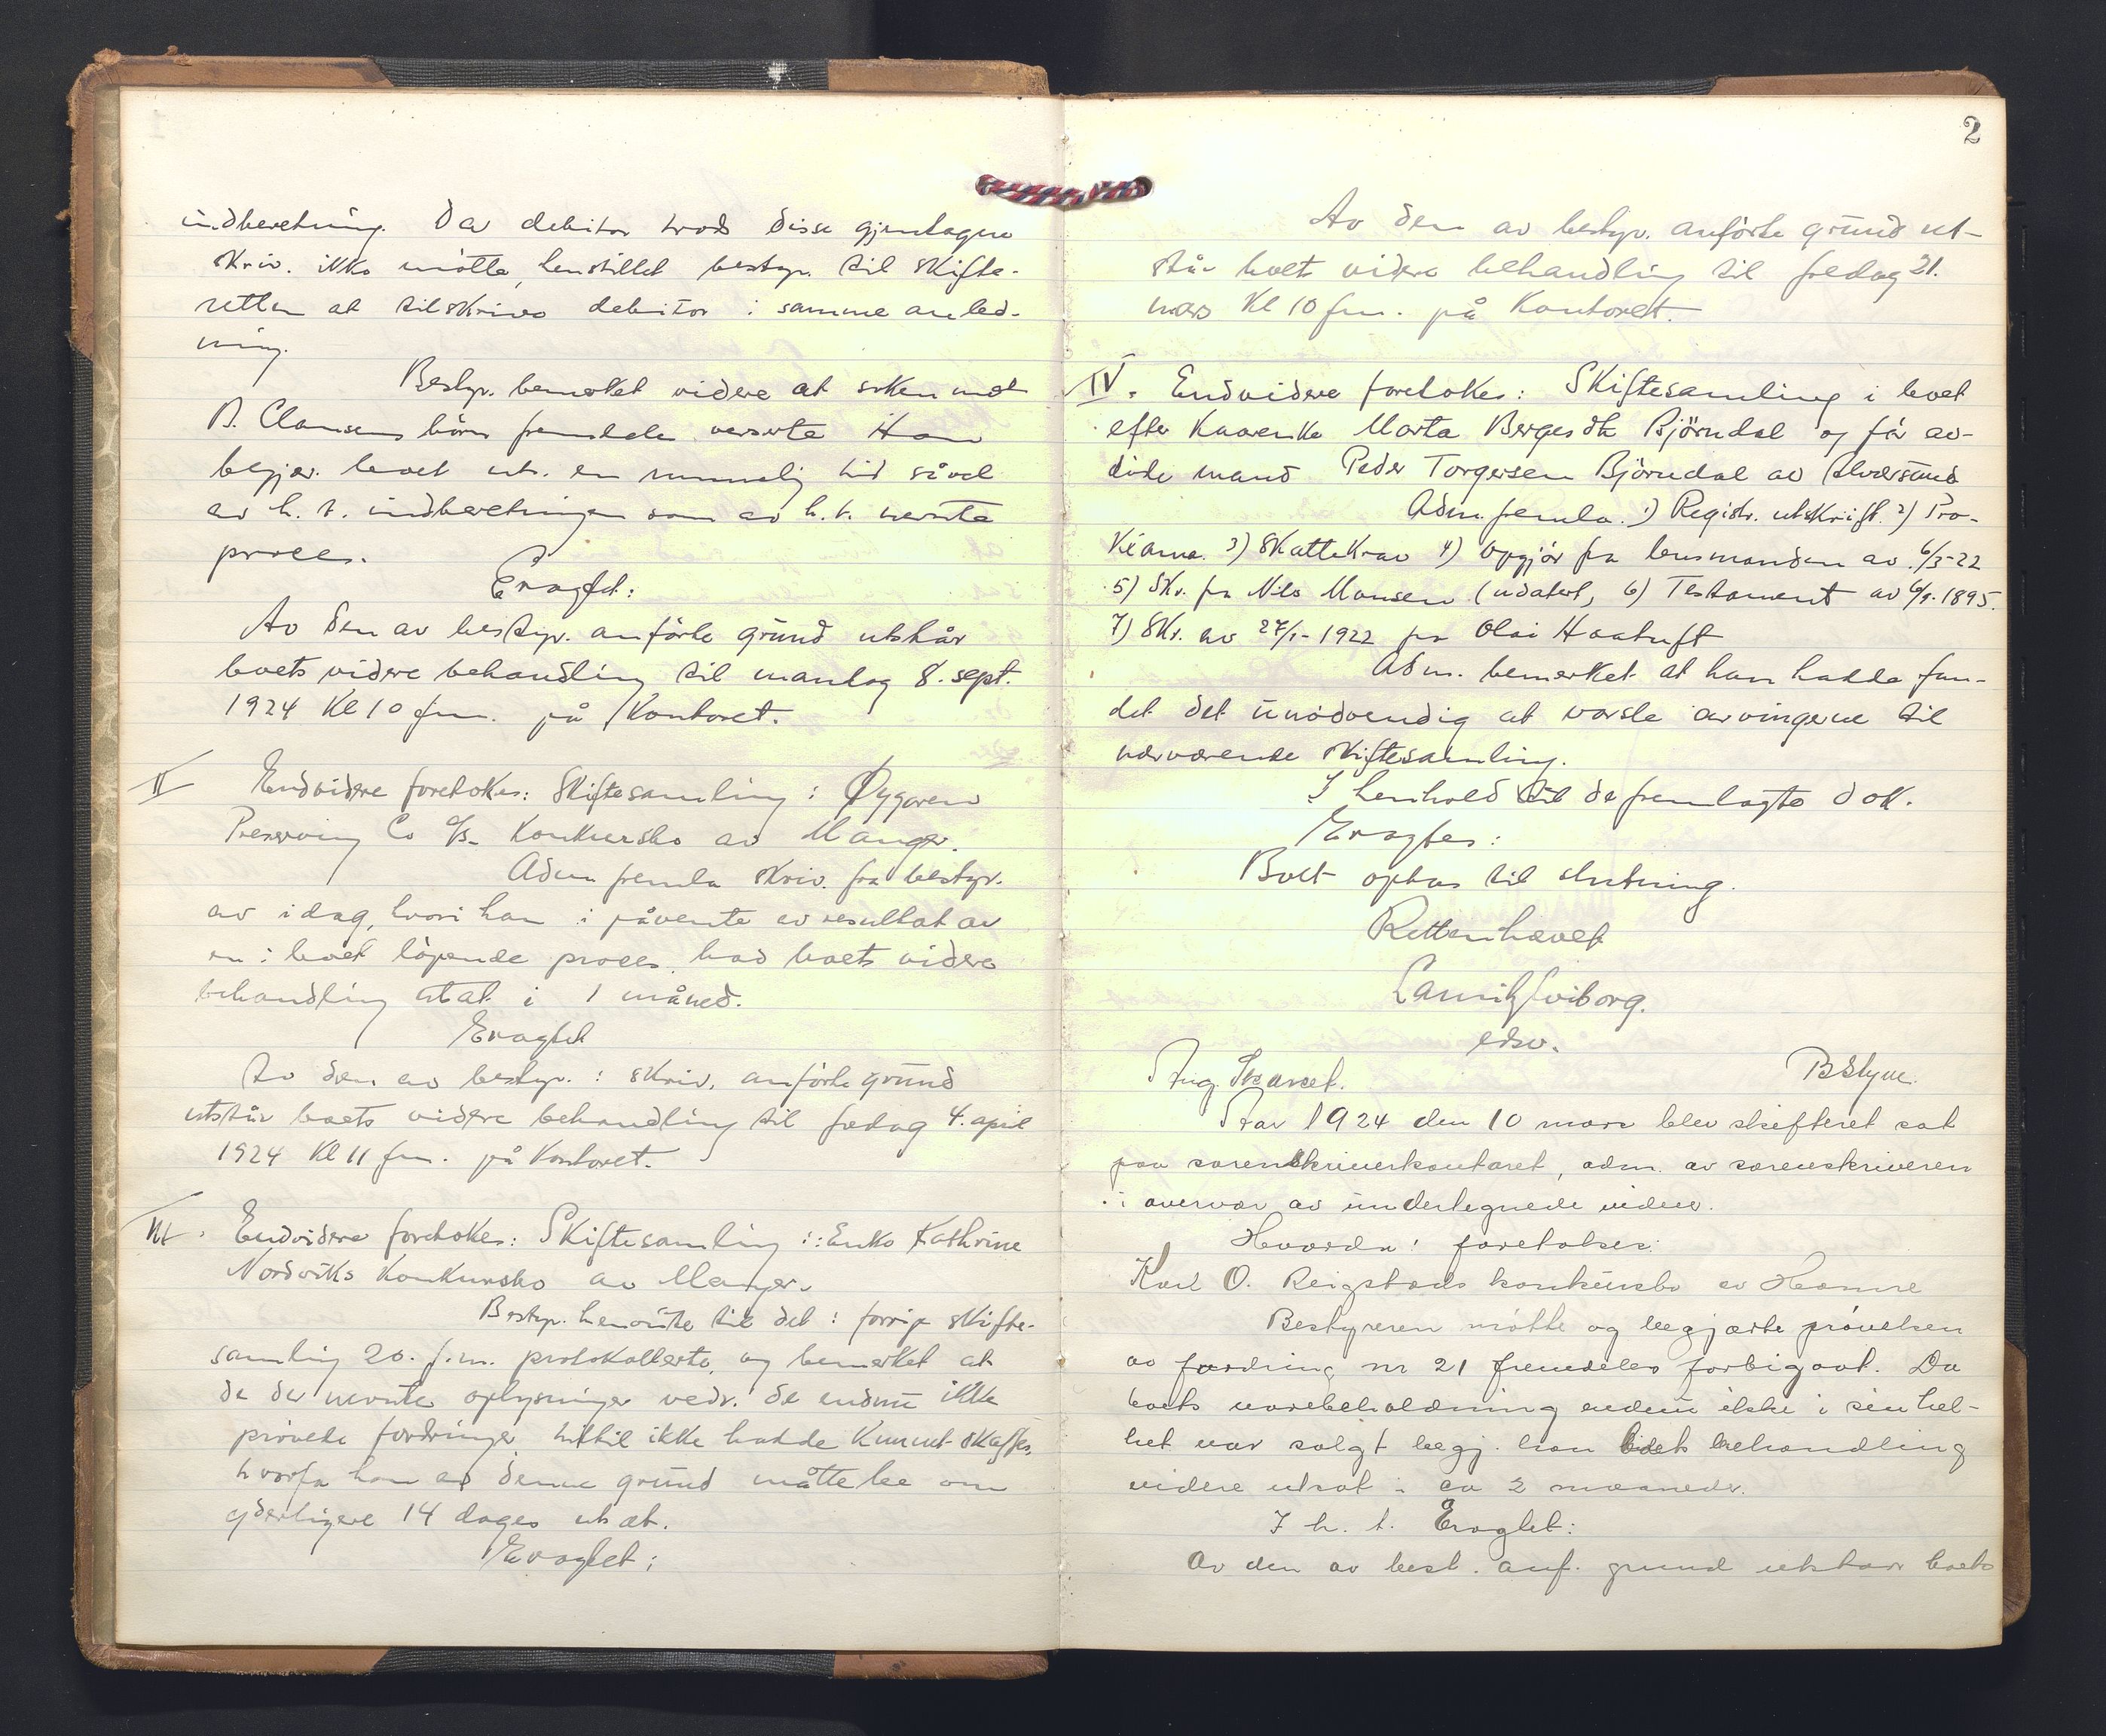 indberetning. Da debitor trods disse gjentagne
skriv. ikke møtte, henstillet bestyr. til skifte-
retten at tilskrive debitor i samme anled-
ning.
Bestyr. bemerket videre at saken mot
B. Clausens børn fremdeles verserte. Han
begjær. boet uts. en rummelig tid såvel
av h. t. indberetningen som av h. t. nevnte
proces.
Eragtet:
Av den av bestyr. anførte grund utstår
boets videre behandling til mandag 8. sept.
1924 Kl 10 fm. på Kontoret.
II Endvidere foretokes: Skiftesamling i Øygarens
Preserving Co A/S. Konkursbo av Manger.
Adm fremla skriv. fra bestyr.
av idag, hvori han i påvente av resultat av
en i boet løpende proces bad boets videre
behandling utsat i 1 måned.
Eragtet
Av den av bestyr. i skriv. anførte grund
utstår boets videre behandling til fredag 4. april
1924 Kl 11 fm. på Kontoret.
III. Endvidere foretokes: Skiftesamling i: Enke Kathrine
Nordviks Konkursbo av Manger.
Bestyr. henviste til det i forrige skifte-
samling 20. f.m. protokollerte, og bemerket at
da de nevnte oplysninger vedr. de endnu ikke
prøvede fordringer hittil ikke hadde kunnet skaffes,
hvorfor han av denne grund måtte be om
yderligere 14 dages utsæt.
Eragtet:
2
Av den av bestyr. anførte grund ut-
står boets videre behandling til fredag 21.
mars Kl 10 fm. på Kontoret.
IV. Endvidere foretokes: Skiftesamling i boet
efter Kaarenke Marta Bergesdtr Bjørndal og før av-
døde mand Peder Torgersen Bjørndal av Alversund
Adm. fremla. 1) Registr. utskrift. 2) Pro-
klama. 3) Skattekrav 4) Opgjør fra lensmanden av 6/3-22
5) Skr. fra Nils Monsen (udatert, 6) Testament av 6/9. 1895.
7) Skr. av 27/1-1922 fra Olai Haatuft
Adm. bemerket at han hadde fun-
det det unødvendig at varsle arvingerne til
nærværende skiftesamling.
I henhold til de fremlagte dok.
Eragtes:
Boet optas til slutning.
Retten hævet
Lauritz Wiborg.
edsv.
Aug. BStyve.
Aar 1924 den 10 mars blev skifteret sat
paa sorenskriverkontoret, adm. av sorenskriveren
i overvær av undertegnede vidner.
Hvorda: foretokes:
Karl O. Reigstads konkursbo av Hamre
Bestyreren møtte og begjærte prøvelsen
av fordring nr 21 fremdeles forbigaat. Da
boets varebeholdning endnu ikke i sin hel-
het var solgt begj. han boets behandling
videre utsat i ca 2 maaneder.
I h. t. Eragtet:
Av den av best. anf. grund utstaar boets